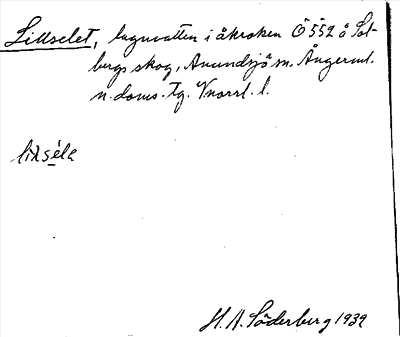 Lillselet, lugnvatten i åkroken Ö 552 å Sol-
bergs skog, Anundsjö sn. Ångerml.
n. doms. tg. Vnorrl. l.
lilséla
H. A. Söderberg 1932